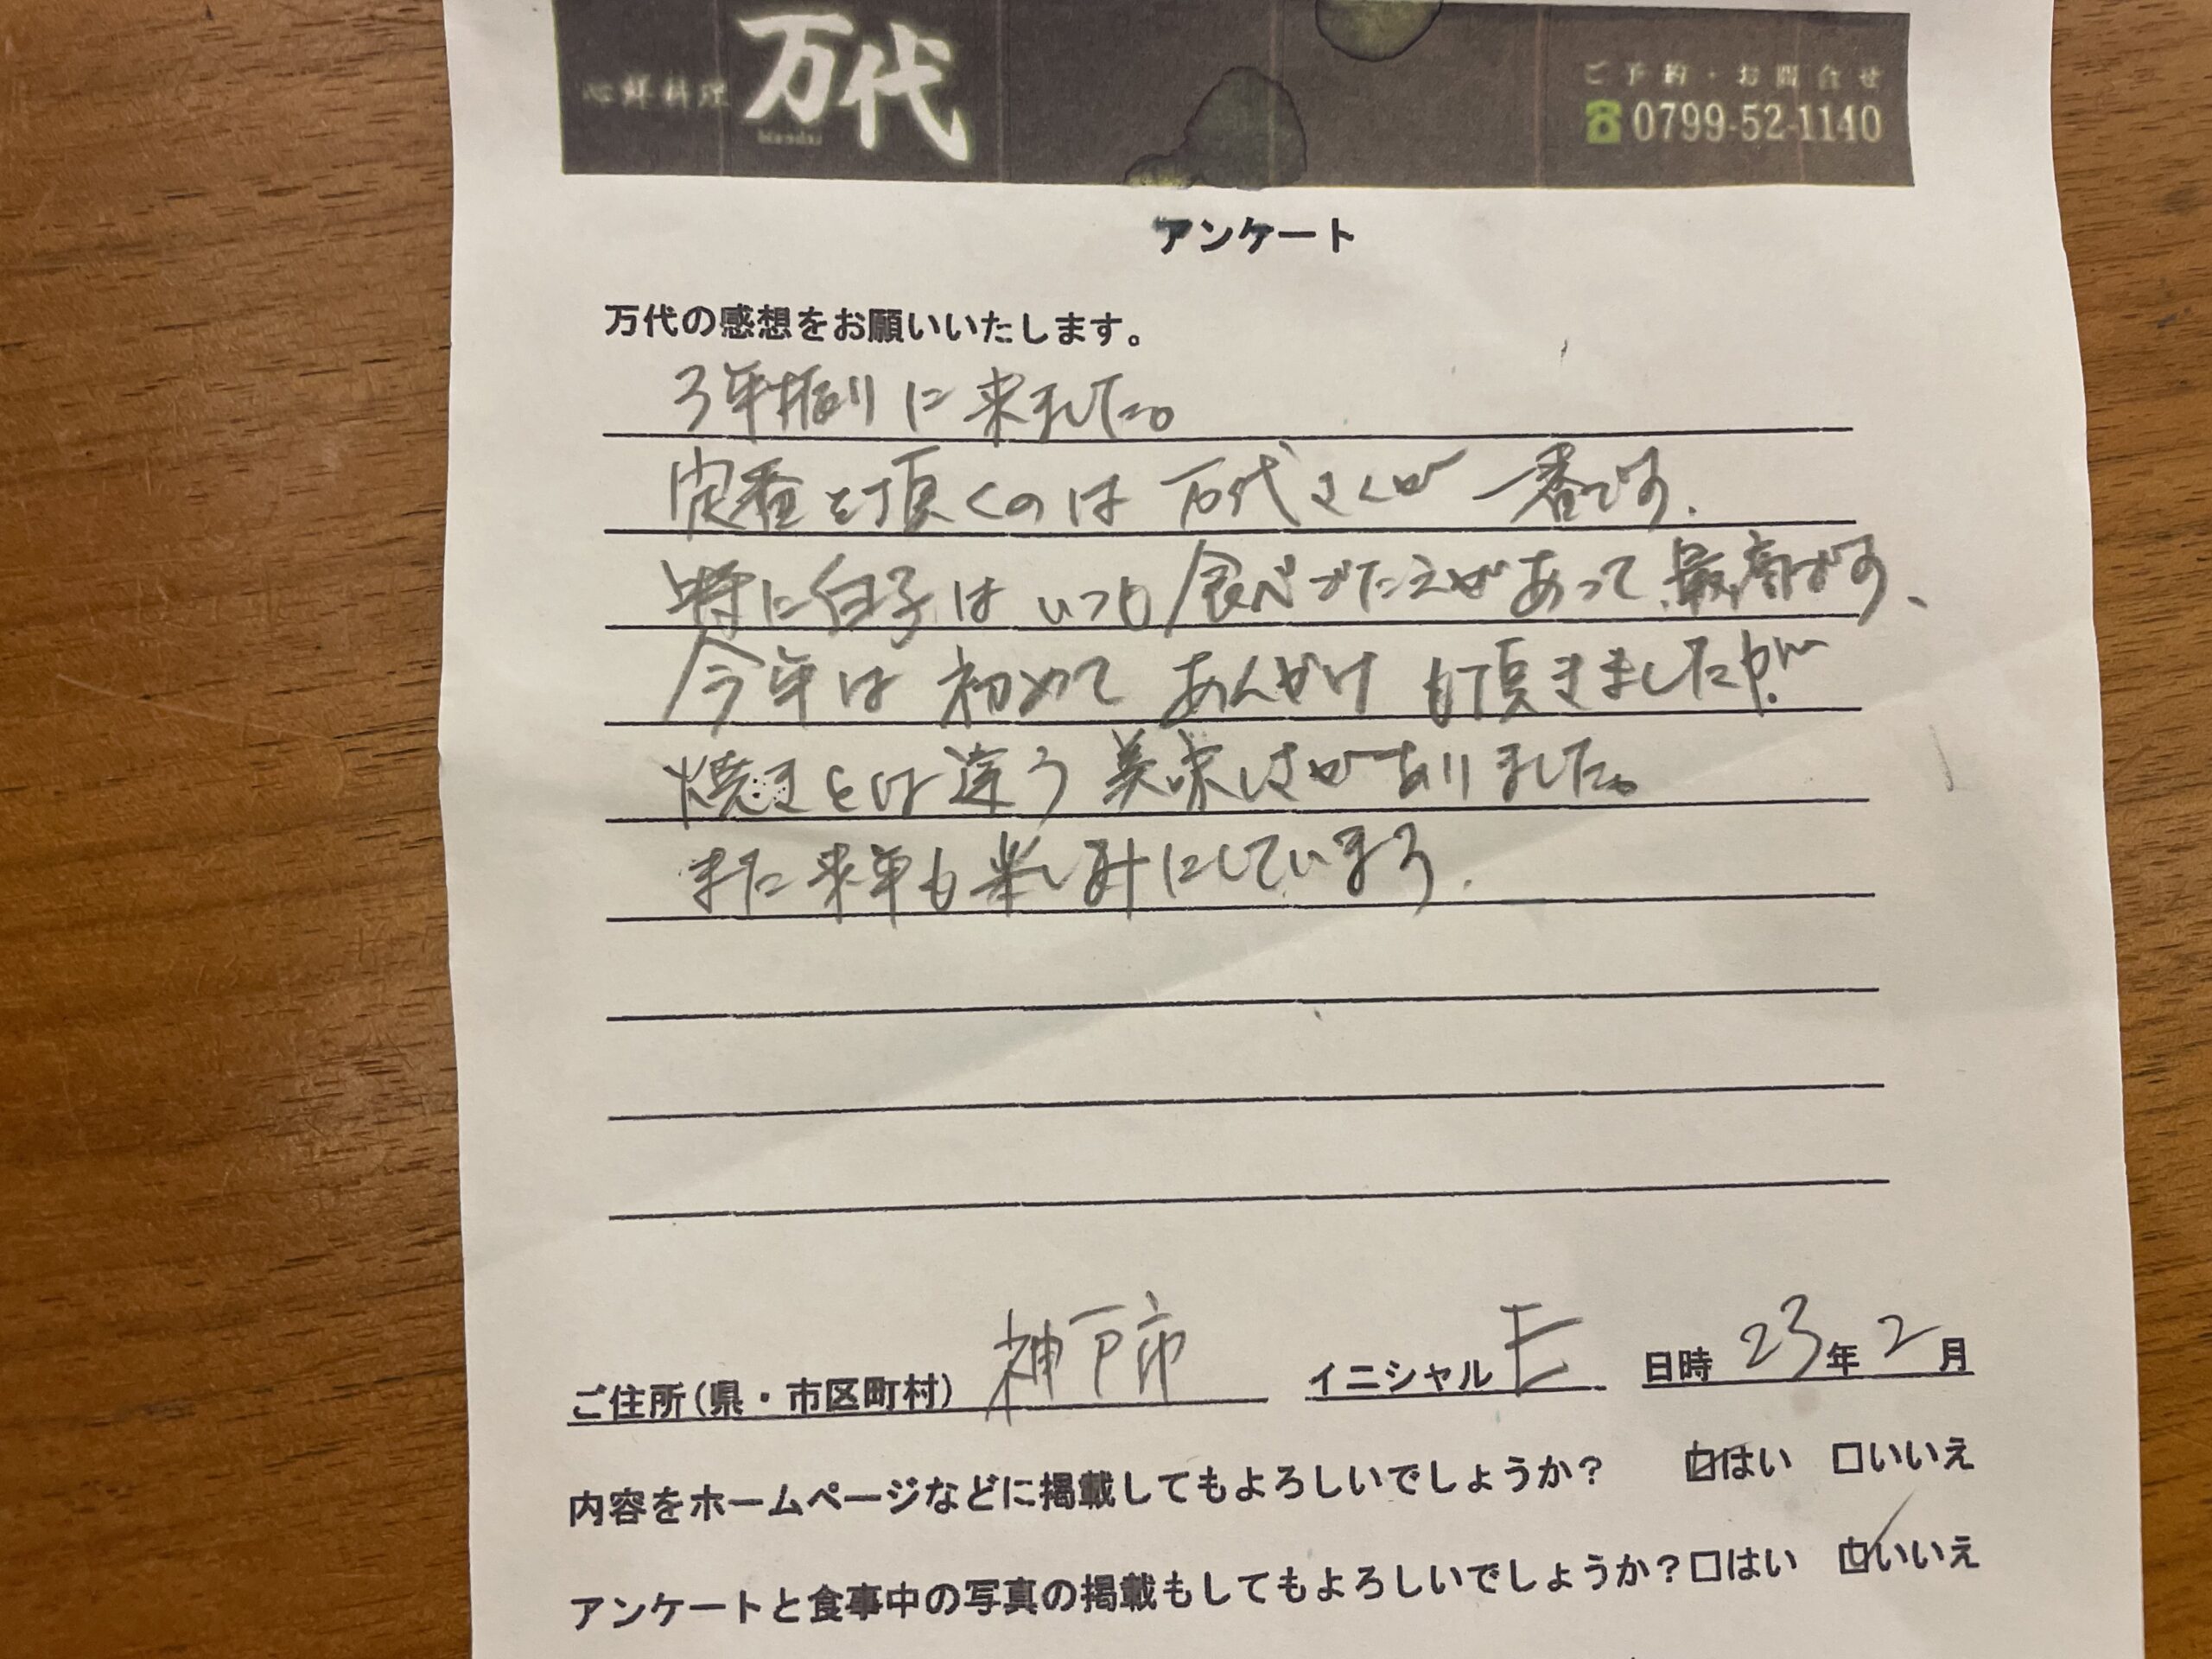 心鮮料理 万代
bandai
ご予約・お問合せ
☎0799-52-1140
アンケート
万代の感想をお願いいたします。
3年振りに来ました。
定番を頂くのは 万代さんが 一番です.
特に白子は いつも 食べごたえがあって 最高です、
今年は 初めて あんかけ も頂きましたが
焼きとは違う 美味しさがありました。
また来年も楽し計にしています.
ご住所(県・市区町村) 神戸市 イニシャル E 日時 23年 2月
内容をホームページなどに掲載してもよろしいでしょうか? ☑はい □いいえ
アンケートと食事中の写真の掲載もしてもよろしいでしょうか?□はい ☑いいえ